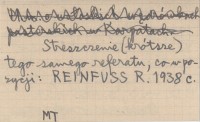 pasterskich w Karpatach
Streszczenie (krótsze)
tego samego referatu, co w po-
zycji: REINFUSS R. 1938 c.
MT